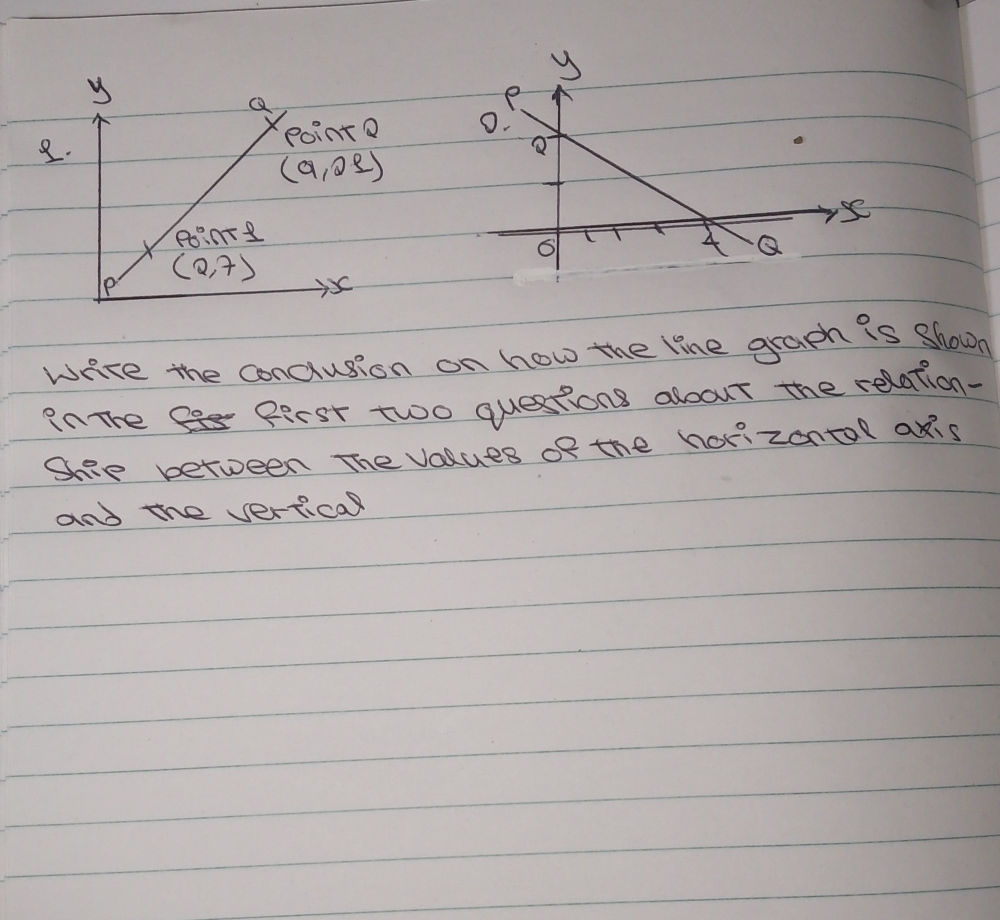 y
y
Q
P
1.
Point 2
2.
2
(9,21)
x
Point 1
0
4
Q
(2,7)
P
x
Write the conclusion on how the line graph is shown
in the first two questions about the relation-
ship between the values of the horizontal axis
and the vertical